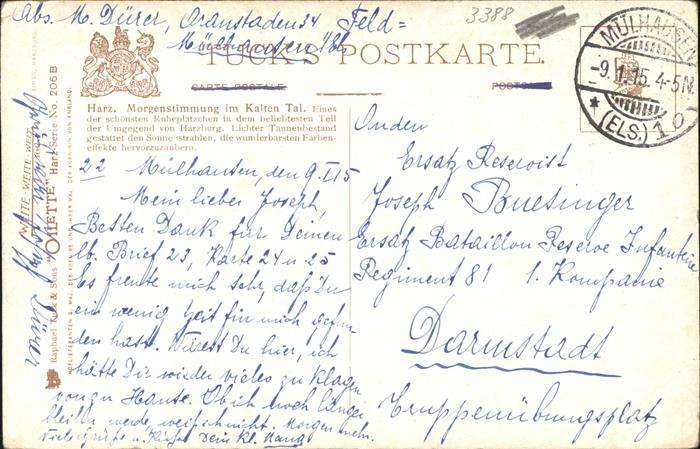 Abs. M. Dürer, Oranstaden 34 Feld=
Mülhausen i/Els.
3388
TUCK'S POSTKARTE.
CARTE POSTALE
MÜLHAUSEN
-9.1.15. 4-5N.
* (ELS.) 1 o
Harz. Morgenstimmung im Kalten Tal. Eines
der schönsten Ruheplätzchen in dem beliebtesten Teil
der Umgegend von Harzburg. Lichter Tannenbestand
gestattet den Sonnenstrahlen, die wunderbarsten Farben-
effekte hervorzuzaubern.
22 Mülhausen, den 9.I.15
Mein lieber Joseph,
Besten Dank für Deinen
lb. Brief 23, Karte 24 u 25
Es freute mich sehr, daß Du
ein wenig Zeit für mich gefun-
den hast. Wärest Du hier, ich
hätte Dir wieder vieles zu klagen
von zu Hause. Ob ich noch länger
bleiben werde, weiß ich nicht. Morgen mehr.
Viele Grüße u. Küsse Dein kl.
An den
Ersatz Reservist
Joseph Buesinger
Ersatz Bataillon Reserve Infanterie
Regiment 81 1. Kompanie
Darmstadt
Truppenübungsplatz
Raphael Tuck & Sons "OILETTE" Harz Serie No. 206 B